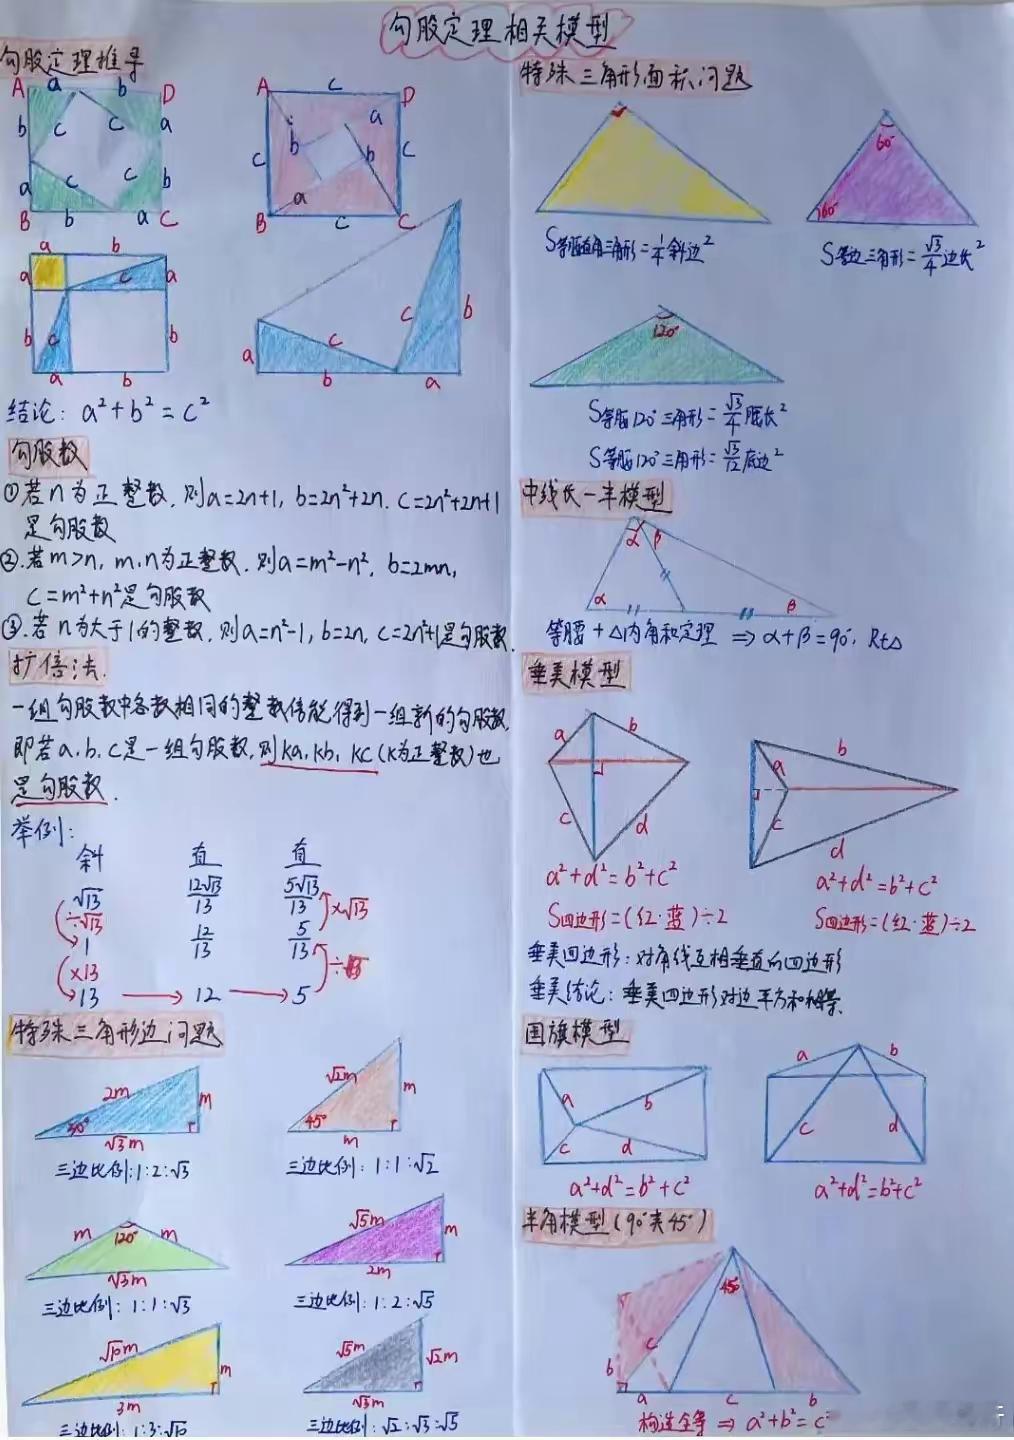 勾股定理相关模型
勾股定理推导
A a b D
b c c a
a c c b
B b a C
A c D
a
c b b c
a
B c C
a b
a c a
b c b
a b
c b
a c
b a
结论: a²+b²=c²
勾股数
①若n为正整数,则a=2n+1, b=2n²+2n. c=2n²+2n+1
是勾股数
②.若m>n, m、n为正整数.则a=m²-n², b=2mn,
c=m²+n²是勾股数
③.若n为大于1的整数,则a=n²-1, b=2n, c=2n²+1是勾股数.
扩倍法.
一组勾股数中各数相同的整数倍能得到一组新的勾股数,
即若a、b、c是一组勾股数,则ka, kb, kc(k为正整数)也
是勾股数.
举例:
斜 直 直
√13 12√13/13 5√13/13
÷√13 ×√13
1 12/13 5/13
×13 ÷
13 → 12 → 5
特殊三角形边问题
2m m 30° √3m
三边比例:1:2:√3
√2m m 45° m
三边比例: 1:1:√2
m 120° m √3m
三边比例: 1:1:√3
√5m m 2m
三边比例: 1:2:√5
√10m m 3m
三边比例: 1:3:√10
√5m √2m √3m
三边比例: √2:√3:√5
特殊三角形面积问题
S等腰直角三角形=1/4斜边²
60° 60°
S等边三角形=√3/4边长²
120°
S等腰120°三角形=√3/4腰长²
S等腰120°三角形=√3/12底边²
中线长一半模型
α β
α β
等腰+△内角和定理 ⇒ α+β=90°, Rt△
垂美模型
a b c d
a²+d²=b²+c²
S四边形=(红·蓝)÷2
b a c d
a²+d²=b²+c²
S四边形=(红·蓝)÷2
垂美四边形:对角线互相垂直的四边形
垂美结论:垂美四边形对边平方和相等.
国旗模型
a b c d
a²+d²=b²+c²
a b c d
a²+d²=b²+c²
半角模型(90°夹45°)
45°
b c
a c b
构造全等 ⇒ a²+b²=c²